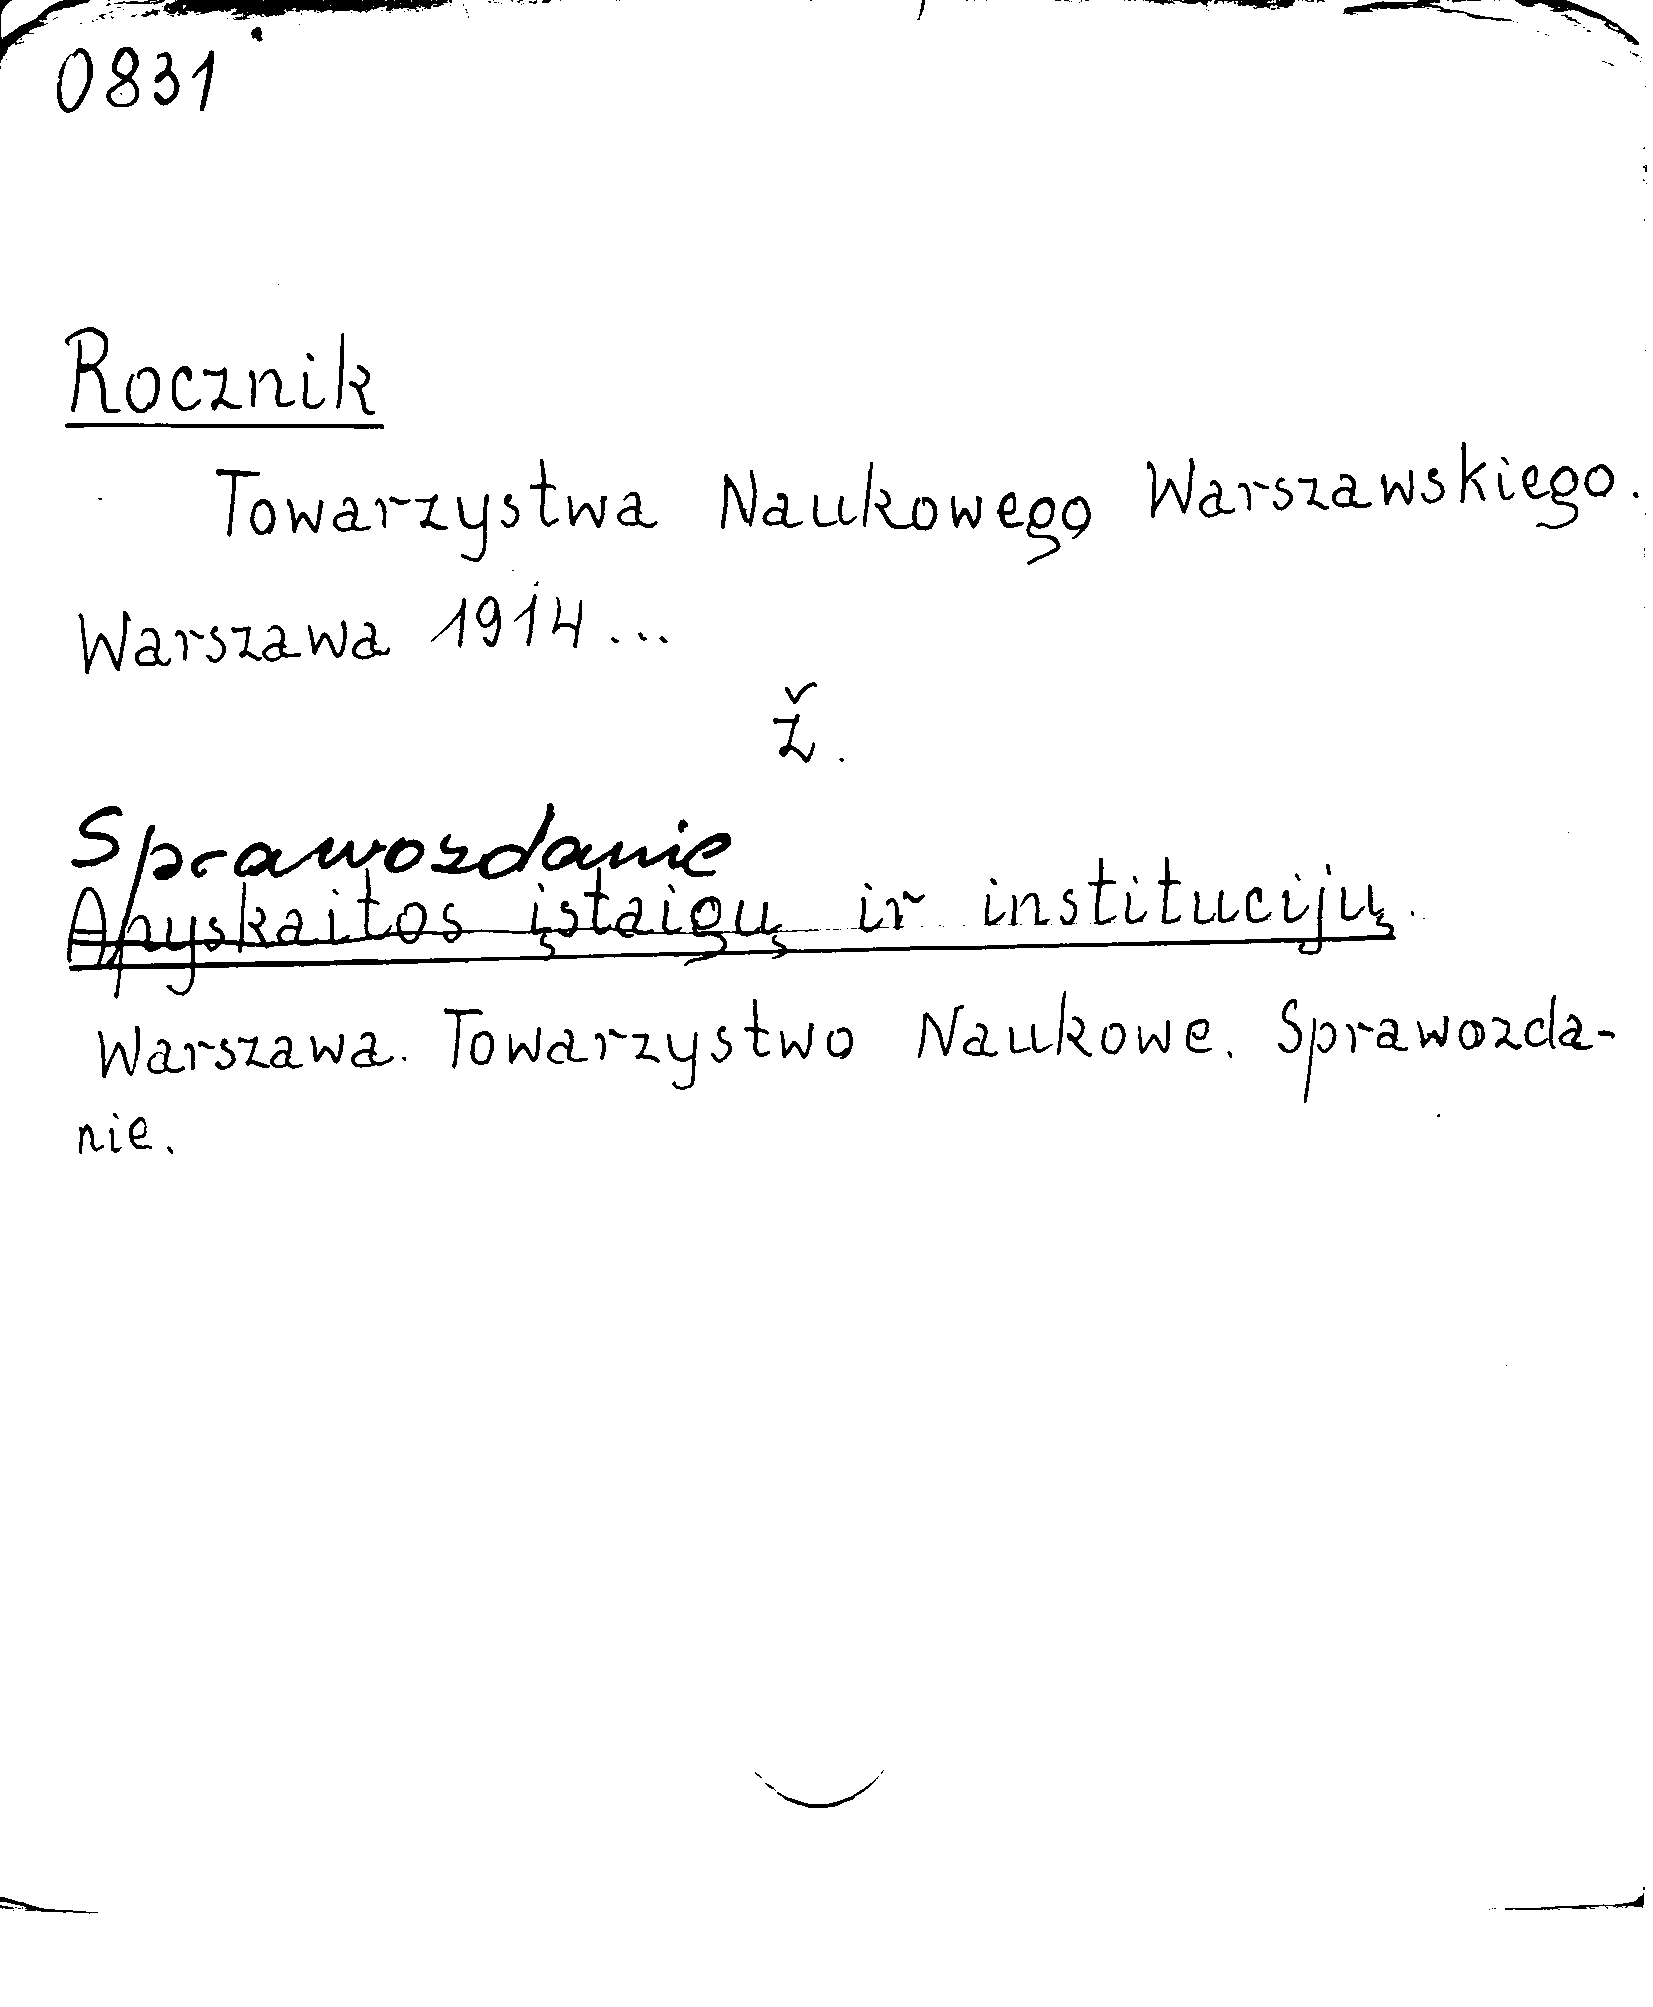 0831
Rocznik
Towarzystwa Naukowego Warszawskiego.
Warszawa 1914...
ž.
Sprawozdanie
Apyskaitos įstaigų ir institucijų.
Warszawa. Towarzystwo Naukowe. Sprawozda-
nie.